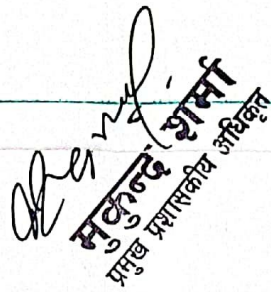 मुकुन्द शर्मा
प्रमुख प्रशासकीय अधिकृत